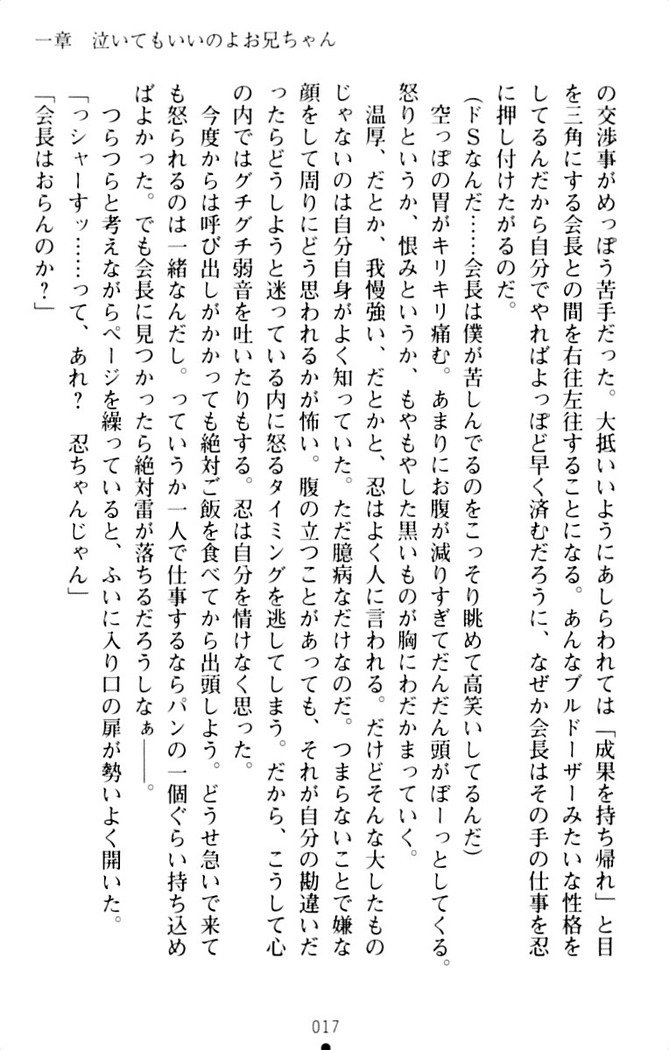 一章　泣いてもいいのよお兄ちゃん
の交渉事がめっぽう苦手だった。大抵いいようにあしらわれては「成果を持ち帰れ」と目
を三角にする会長との間を右往左往することになる。あんなブルドーザーみたいな性格を
してるんだから自分でやればよっぽど早く済むだろうに、なぜか会長はその手の仕事を忍
に押し付けたがるのだ。
（ドＳなんだ……会長は僕が苦しんでるのをこっそり眺めて高笑いしてるんだ）
　空っぽの胃がキリキリ痛む。あまりにお腹が減りすぎてだんだん頭がぼーっとしてくる。
怒りというか、恨みというか、もやもやした黒いものが胸にわだかまっていく。
　温厚、だとか、我慢強い、だとかと、忍はよく人に言われる。だけどそんな大したもの
じゃないのは自分自身がよく知っていた。ただ臆病なだけなのだ。つまらないことで嫌な
顔をして周りにどう思われるかが怖い。腹の立つことがあっても、それが自分の勘違いだ
ったらどうしようと迷っている内に怒るタイミングを逃してしまう。だから、こうして心
の内ではグチグチ弱音を吐いたりもする。忍は自分を情けなく思った。
　今度からは呼び出しがかかっても絶対ご飯を食べてから出頭しよう。どうせ急いで来て
も怒られるのは一緒なんだし。っていうか一人で仕事するならパンの一個ぐらい持ち込め
ばよかった。でも会長に見つかったら絶対雷が落ちるだろうしなぁ――。
　つらつらと考えながらページを繰っていると、ふいに入り口の扉が勢いよく開いた。
「っシャーすッ……って、あれ？　忍ちゃんじゃん」
「会長はおらんのか？」
017